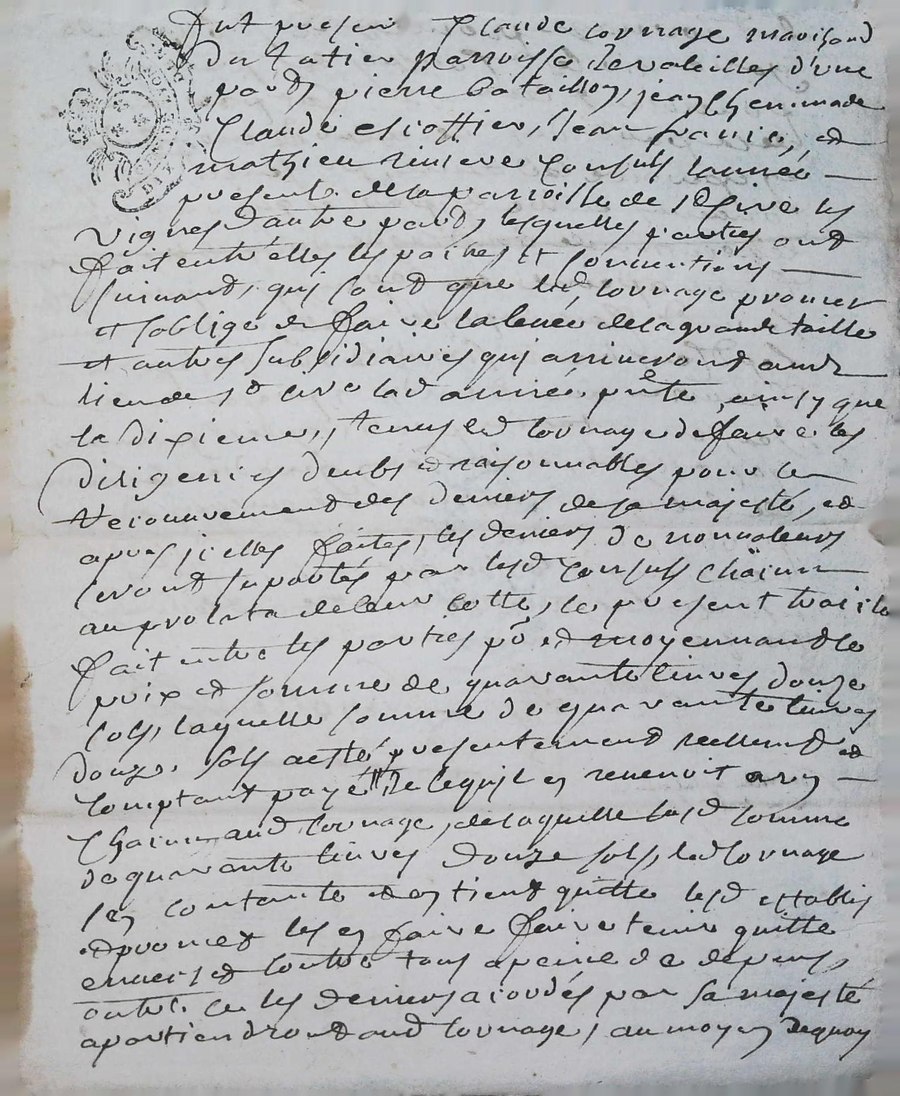 Fut presen Claude Cournage marchand
paroisse de valeilles d'une
pard pierre bataillon, jean
Claude escoffier, jean francic, ed
mathieu riviere Consuls lannée
presente dela parroisse de st Sire les
vignes d'autre pard, lesquelles parties ond
fait entr'elles les paches et conventions
suivand, qui sond que led Cournage promet
et soblige de faire la levée dela grande taille
et autres subsidiaires qui arriverond aud
lieu de st cire lad année pnte, ainsy que
la dixieme, tenu led Cournage de faire les
diligences deubs et raisonnables pour le
recouvremend des deniers de sa majesté, ed
apres icelles faites, les deniers de nonvaleurs
serond suportés par lesd Consuls chacun
au prorata de leur cotte, le present traicté
fait entre les parties po ed moyennand le
prix ed somme de quarante livres douze
sols, laquelle somme de quarante livres
douze sols a esté presentemend reellemd ed
comptant payé de ce qu'il en revenoit a un
Chacun aud Cournage, de laquelle susd somme
de quarante livres douze sols, led Cournage
sen contante ed en tient quitte lesd establis
ed promet les en faire faire tenir quitte
envers ed contre tous a peine de depens,
outre ce les deniers acordés par sa majesté
apartiendrond aud Cournage, au moyen dequoy